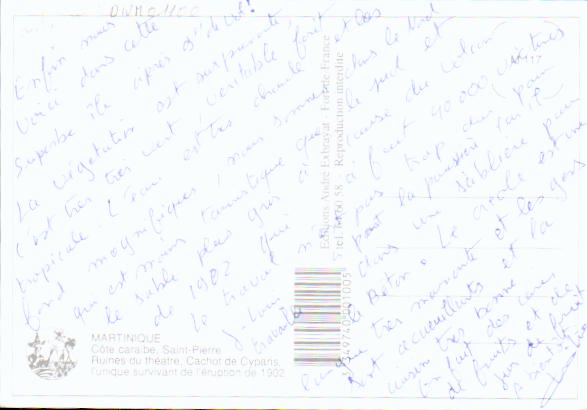 DNM01100
Enfin nous
voici dans cette
superbe île après 9h de vol!
La végétation est surprenante,
c'est très très vert, véritable forêt
tropicale. L'eau est très chaude et les
fond magnifiques, nous sommes dans le Nord
qui est moins touristique que le sud et
le sable plus gris à cause du volcan
de 1902 qui fuit 40 000 victimes
le travail n' pas trop dur pour
travaille dans une sablière pour
le Béton. Le créole est une
langue très marrante et les gens
sont accueillants et la
aussi très bonne
on fait des cures
de fruits et de
jus de fruit
A bientôt
MARTINIQUE
Côte caraïbe, Saint-Pierre
Ruines du théâtre, Cachot de Cyparis,
l'unique survivant de l'éruption de 1902
Editions André Exbrayat - Fort-de-France
Reproduction interdite